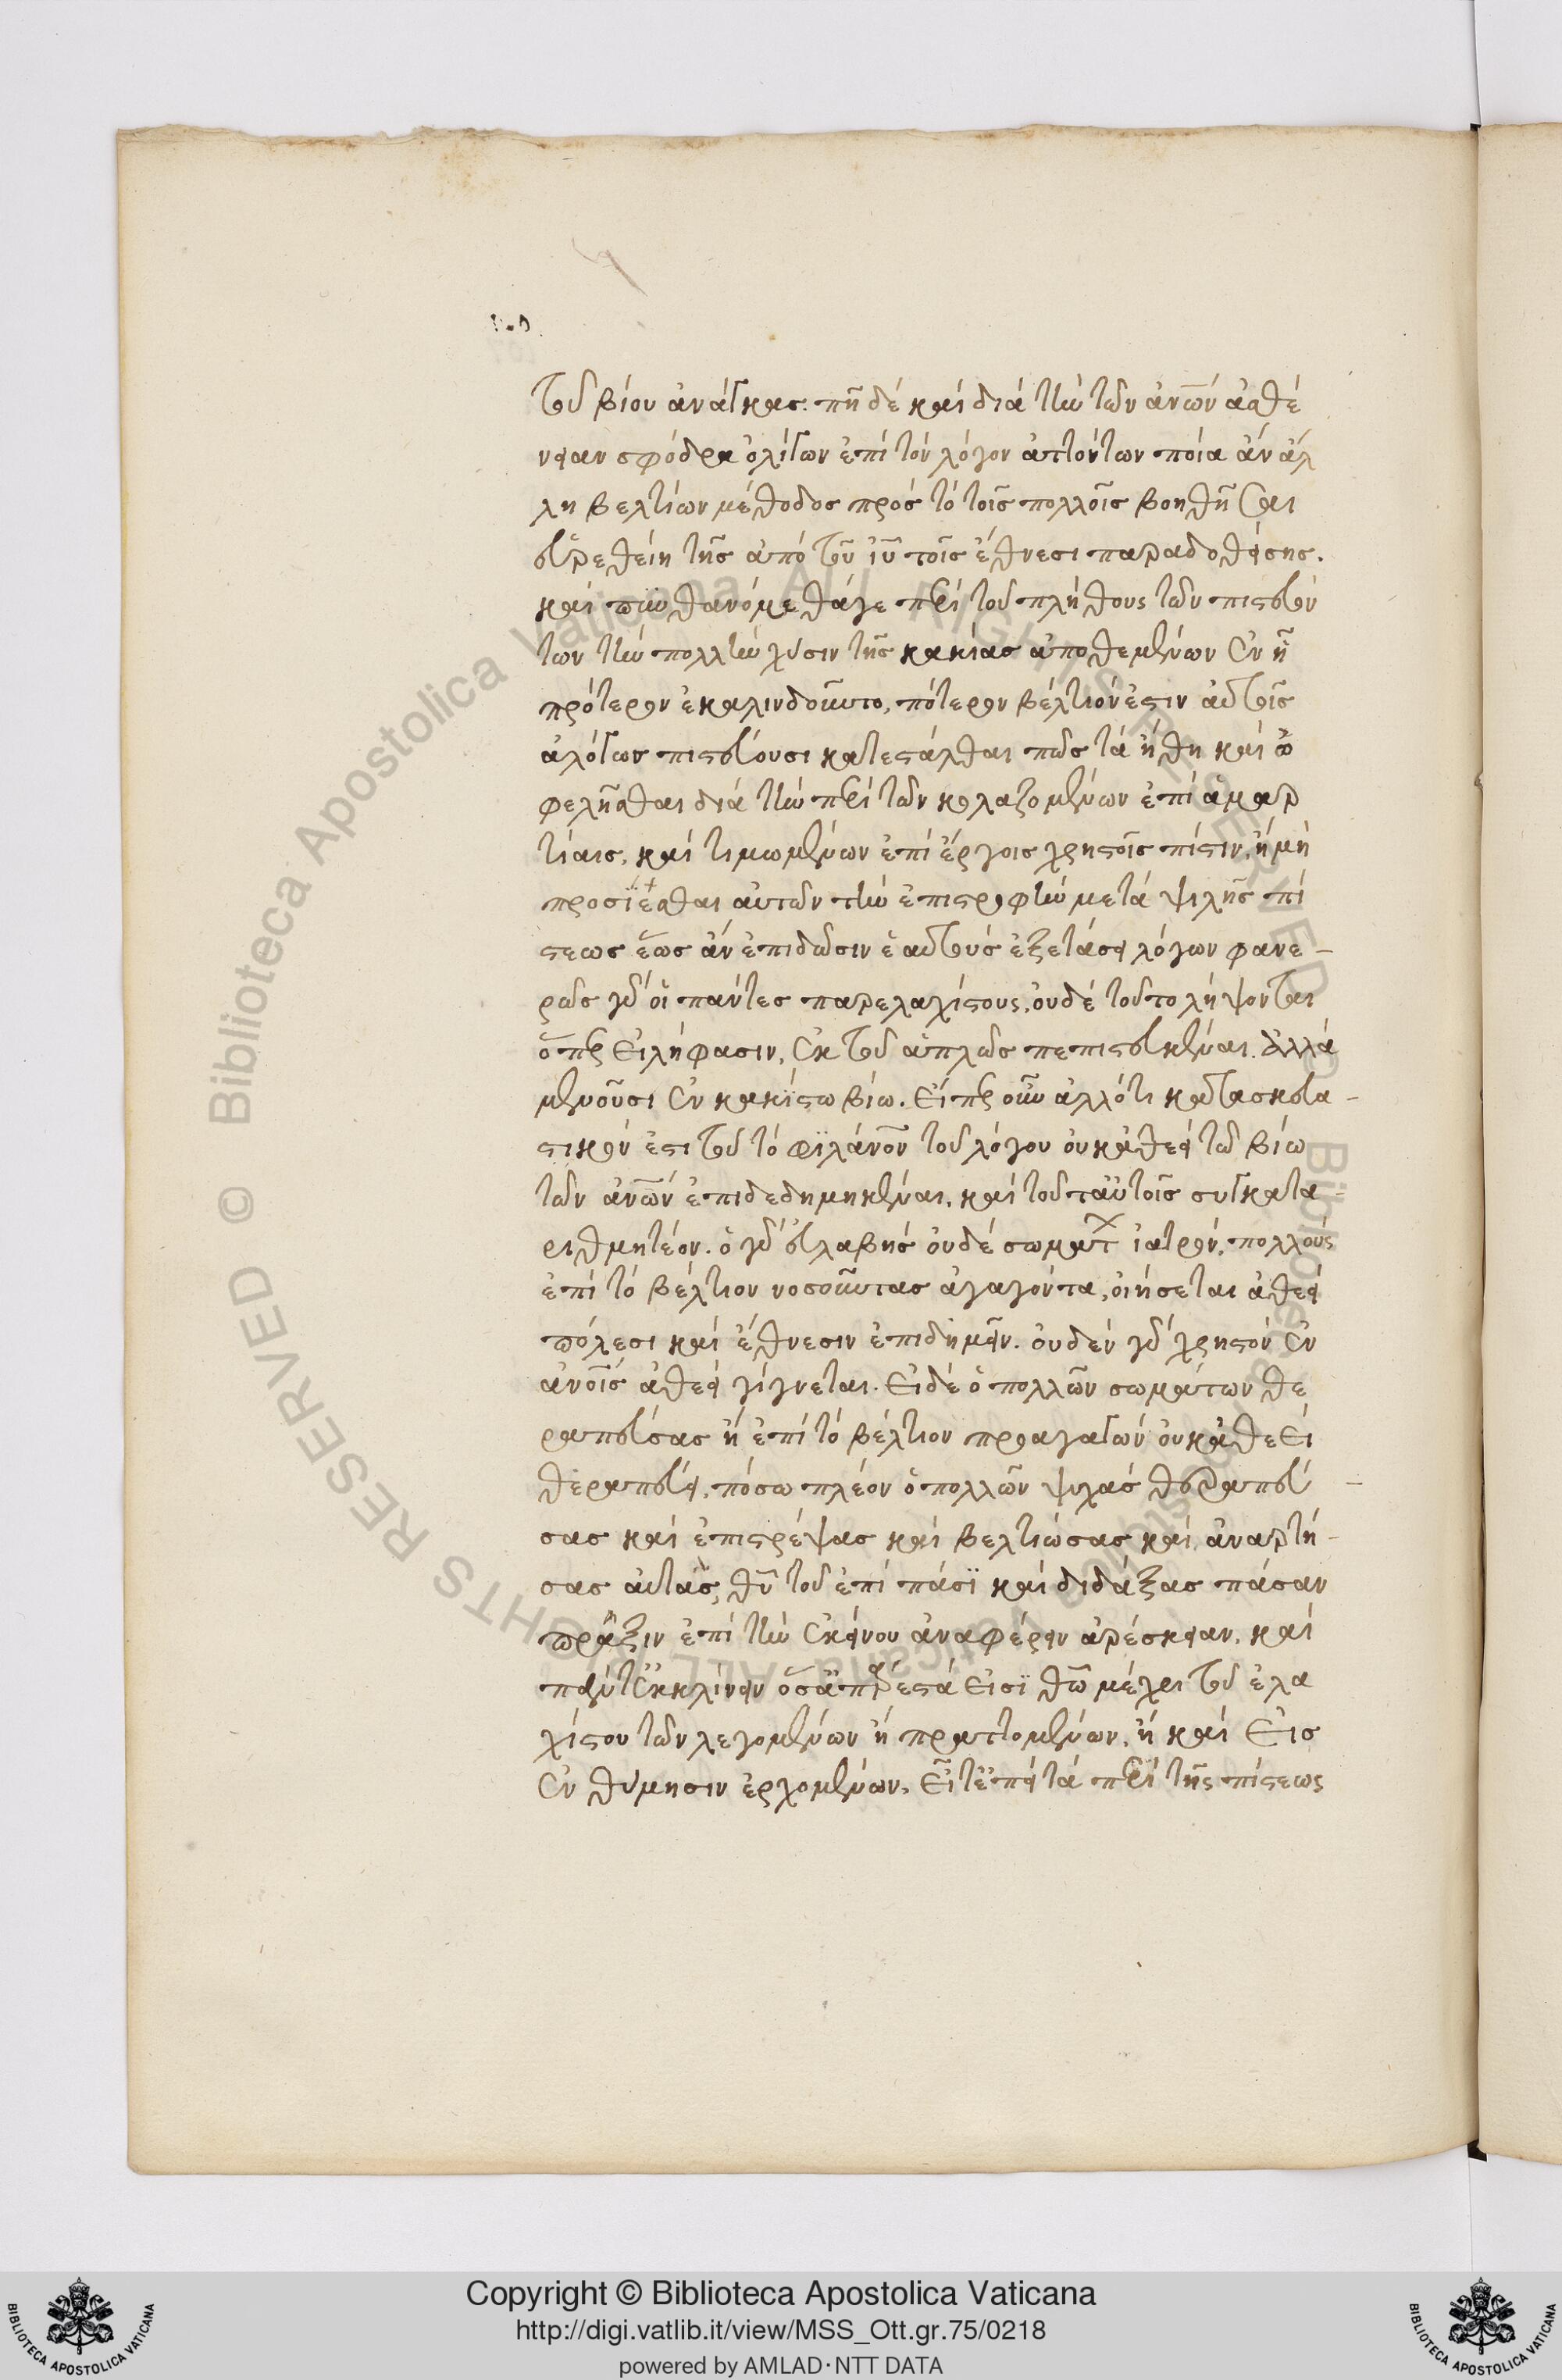 τοῦ βίου ἀνάγκας. πῆ δὲ καὶ διὰ τὴν τῶν ἀνων ἀσθέ
νειαν σφόδρα ὀλίγων ἐπὶ τὸν λόγον ἀττόντων ποία ἂν ἄλ
λη βελτίων μέθοδος πρὸς τὸ τοῖς πολλοῖς βοηθῆσαι
εὑρεθείη τῆς ἀπὸ τοῦ ιυ τοῖς ἔθνεσι παραδοθείσης.
καὶ πυνθανόμεθά γε περὶ τοῦ πλήθους τῶν πιστευόν
των τὴν πολλὴν χύσιν τῆς κακίας ἀποθεμένων ἐν ᾗ
πρότερον ἐκαλινδοῦντο, πότερον βέλτιόν ἐστιν αὐτοῖς
ἀλόγως πιστεύουσι κατεστάλθαι πως τὰ ἤθη καὶ ὠ
φελῆσθαι διὰ τὴν περὶ τῶν κολαζομένων ἐπὶ ἁμαρ
τίαις, καὶ τιμωμένων ἐπὶ ἔργοις χρηστοῖς πίστιν, ἢ μὴ
προσΐεσθαι αὐτῶν τὴν ἐπιστροφὴν μετὰ ψιλῆς πί
στεως ἕως ἂν ἐπιδῶσιν ἑαυτοὺς ἐξετάσει λόγων φανε-
ρῶς γὰρ οἱ πάντες παρελαχίστους, οὐδὲ τοῦτο λήψονται
ὅπερ εἰλήφασιν, ἐκ τοῦ ἁπλῶς πεπιστευκέναι. ἀλλὰ
μένουσι ἐν κακίστω βίω. εἴπερ οὖν ἄλλό τι κατασκευα-
στικόν ἐστι τοῦ τὸ φϊλάνον τοῦ λόγου οὐκ ἀθεεὶ τῶ βίω
τῶν ἀνων ἐπιδεδημηκέναι, καὶ τοῦτ αὐτοῖς συγκατα-
ριθμητέον. ὁ γὰρ εὐλαβὴς οὐδὲ σωματ ἰατρόν, πολλοὺς
ἐπὶ τὸ βέλτιον νοσοῦντας ἀγαγόντα, οἰήσεται ἀθεεὶ
πόλεσι καὶ ἔθνεσιν ἐπιδημεῖν. οὐδὲν γὰρ χρηστὸν ἐν
ἀνοις ἀθεεὶ γίγνεται. εἰ δὲ ὁ πολλῶν σωμάτων θε
ραπεύσας ἢ ἐπὶ τὸ βέλτιον προαγαγὼν οὐκ ἀθεεὶ
θεραπεύει, πόσω πλέον ὁ πολλῶν ψυχὰς θεραπεύ-
σας καὶ ἐπιστρέψας καὶ βελτιώσας καὶ, ἀναρτή-
σας αὐτὰς, θυ τοῦ ἐπὶ πᾶσϊ καὶ διδάξας πᾶσαν
πρᾶξιν ἐπὶ τὴν ἐκείνου ἀναφέρειν ἀρέσκειαν, καὶ
πάντ ἐκκλίνειν ὅσ ἀπάρεστά εἰσϊ θω μέχρι τοῦ ἐλα
χίστου τῶν λεγομένων ἢ πραττομένων, ἢ καὶ εἰς
ἐν θύμησιν ἐρχομένων, εἶτ ἐπεὶ τὰ περὶ τῆς πίστεως
Copyright © Biblioteca Apostolica Vaticana
http://digi.vatlib.it/view/MSS_Ott.gr.75/0218
powered by AMLAD·NTT DATA